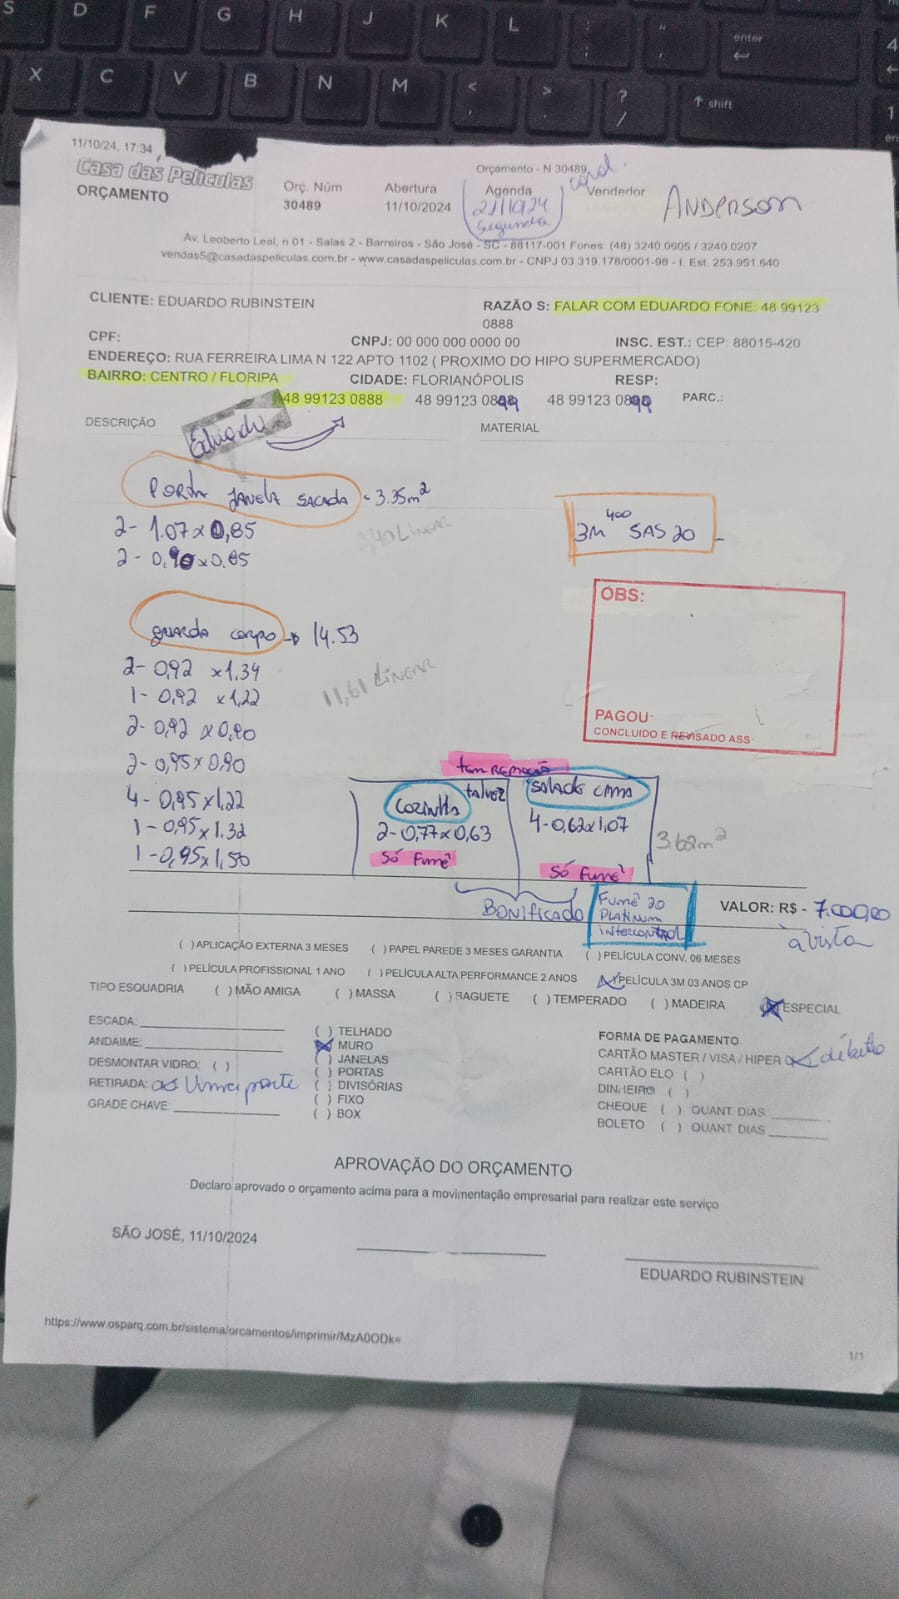 S D F G H J K L : ; " '
enter
X C V B N M < , > . ? /
shift
11/10/24, 17:34
Orçamento - N 30489
Casa das Películas
ORÇAMENTO
Orç. Núm
30489
Abertura
11/10/2024
Agenda
21/10/24
Segunda
Vendedor
ANDERSON
Av. Leoberto Leal, n 01 - Salas 2 - Barreiros - São José - SC - 88117-001 Fones: (48) 3240.0605 / 3240.0207
vendas5@casadaspeliculas.com.br - www.casadaspeliculas.com.br - CNPJ 03.319.178/0001-98 - I. Est. 253.951.640
CLIENTE: EDUARDO RUBINSTEIN
RAZÃO S: FALAR COM EDUARDO FONE: 48 99123
0888
CPF:
CNPJ: 00 000 000 0000 00
INSC. EST.: CEP: 88015-420
ENDEREÇO: RUA FERREIRA LIMA N 122 APTO 1102 ( PROXIMO DO HIPO SUPERMERCADO)
BAIRRO: CENTRO / FLORIPA
CIDADE: FLORIANÓPOLIS
RESP:
48 99123 0888
48 99123 0899
48 99123 0899
PARC.:
DESCRIÇÃO
Eduardo
MATERIAL
PORTA JANELA SACADA - 3.35m²
2- 1.07 x 0,85
3,40 Linear
2- 0,90 x 0,85
400
3M SAS 20
OBS:
PAGOU:
CONCLUIDO E REVISADO ASS
guarda corpo → 14.53
2- 0,92 x 1,34
11,61 Linear
1- 0,92 x 1,22
2- 0,92 x 0,90
2- 0,95 x 0,90
4- 0,95 x 1,22
1- 0,95 x 1.32
1- 0,95 x 1,50
tem REMOÇÃO
talvez
COZINHA
2- 0,77 x 0,63
Só Fumê
SALA DE CIMA
4- 0,62 x 1,07
Só Fumê
3.62m²
BONIFICADO
FUMÊ 20
PLATINUM
INTERCONTROL
VALOR: R$ - 7.000,00
à vista
( ) APLICAÇÃO EXTERNA 3 MESES ( ) PAPEL PAREDE 3 MESES GARANTIA ( ) PELÍCULA CONV. 06 MESES
( ) PELÍCULA PROFISSIONAL 1 ANO ( ) PELÍCULA ALTA PERFORMANCE 2 ANOS (X) PELÍCULA 3M 03 ANOS CP
TIPO ESQUADRIA ( ) MÃO AMIGA ( ) MASSA ( ) BAGUETE ( ) TEMPERADO ( ) MADEIRA (X) ESPECIAL
ESCADA:
ANDAIME:
DESMONTAR VIDRO: ( )
RETIRADA: Uma parte
GRADE CHAVE:
( ) TELHADO
(X) MURO
( ) JANELAS
( ) PORTAS
( ) DIVISÓRIAS
( ) FIXO
( ) BOX
FORMA DE PAGAMENTO
CARTÃO MASTER / VISA / HIPER (X) débito
CARTÃO ELO ( )
DINHEIRO ( )
CHEQUE ( ) QUANT. DIAS
BOLETO ( ) QUANT DIAS
APROVAÇÃO DO ORÇAMENTO
Declaro aprovado o orçamento acima para a movimentação empresarial para realizar este serviço
SÃO JOSÉ, 11/10/2024
EDUARDO RUBINSTEIN
https://www.osparq.com.br/sistema/orcamentos/imprimir/MzA0ODk=
1/1